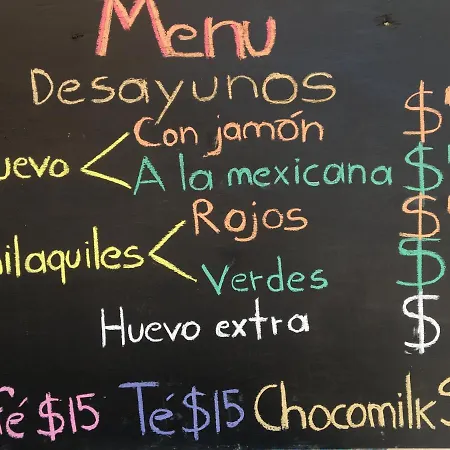 Menu
Desayunos
Con jamón $
uevo < A la mexicana $
Rojos $
ilaquiles < Verdes $
Huevo extra $
fé $15 Té $15 Chocomilk $